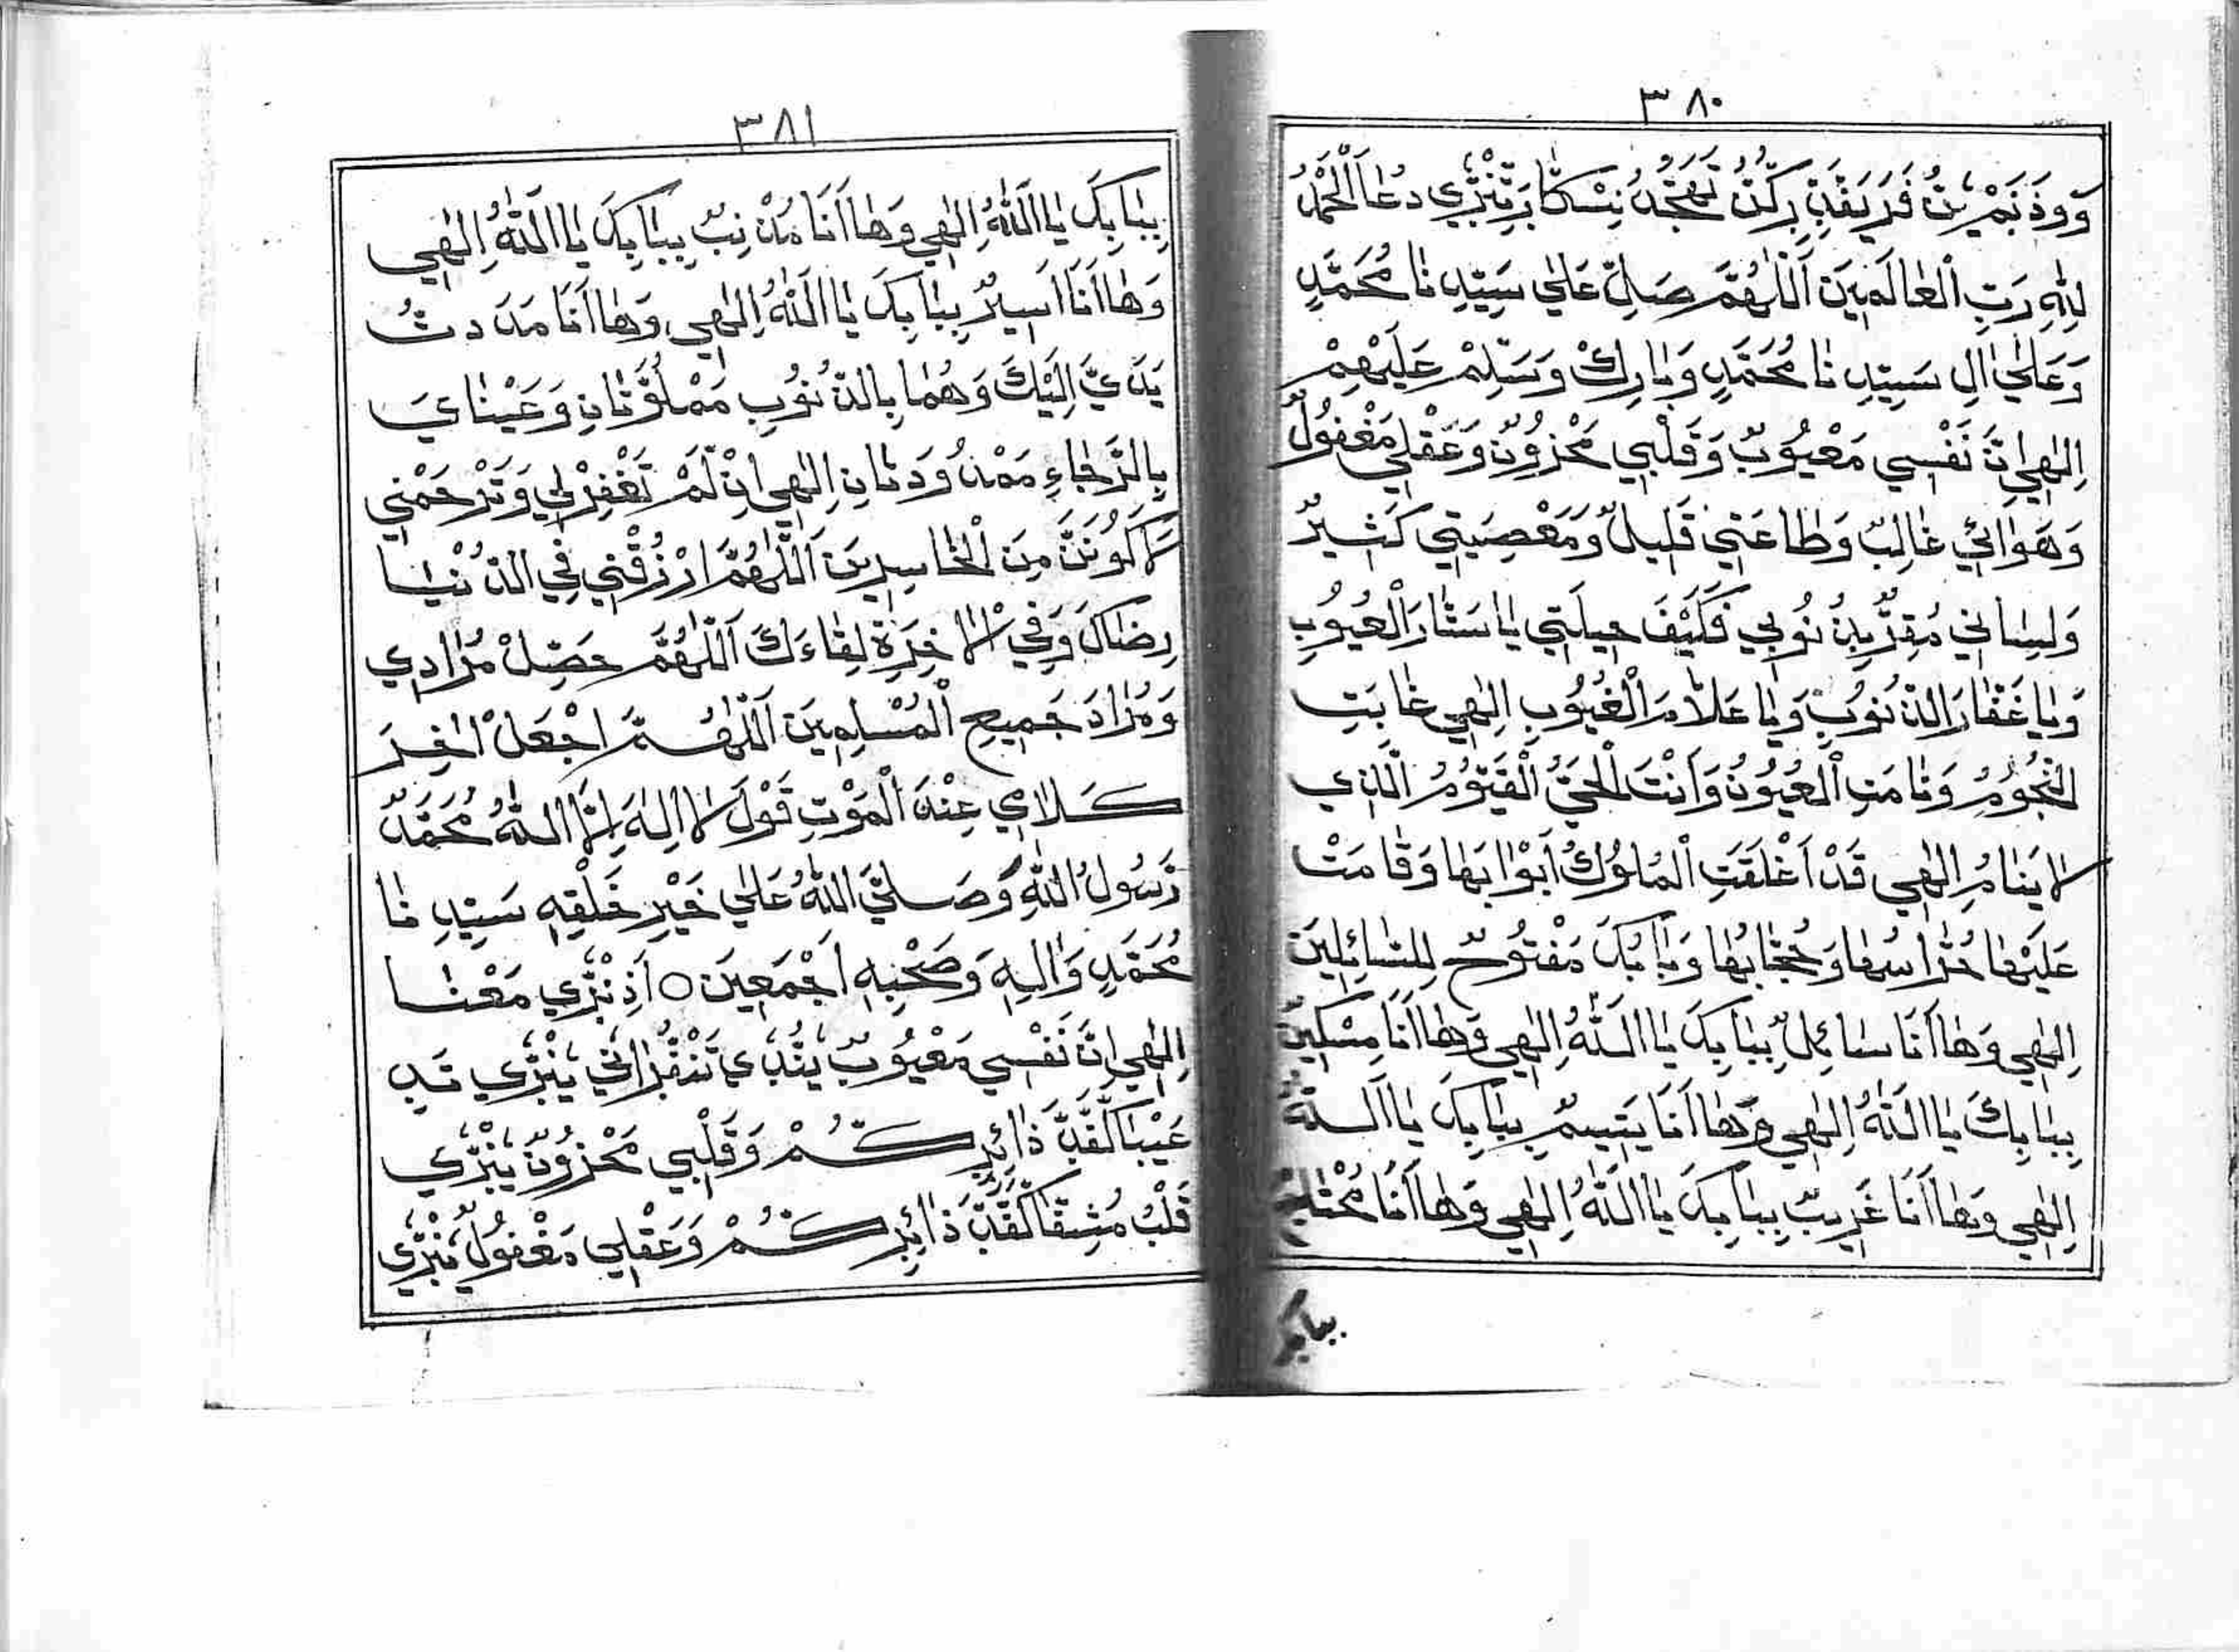 ٣٨٠
دُعَا اَلْحَمْدُ
لِلّٰهِ رَبِّ الْعَالَمِيْنَ اَللّٰهُمَّ صَلِّ عَلٰي سَيِّدِنَا مُحَمَّدٍ
وَعَلٰي اٰلِ سَيِّدِنَا مُحَمَّدٍ وَبَارِكْ وَسَلِّمْ عَلَيْهِمْ
اِلٰهِي اِنَّ نَفْسِي مَعْيُوْبٌ وَقَلْبِي مَحْزُوْنٌ وَعَقْلِي مَغْفُوْلٌ
وَهَوَائِي غَالِبٌ وَطَاعَتِي قَلِيلٌ وَمَعْصِيَتِي كَثِيرٌ
وَلِسَانِي مُقِرٌّ بِذُنُوْبِي فَكَيْفَ حِيلَتِي يَا سَتَّارَ الْعُيُوْبِ
وَيَا غَفَّارَ الذُّنُوْبِ وَيَا عَلَّامَ الْغُيُوْبِ اِلٰهِي غَابَتِ
النُّجُوْمُ وَنَامَتِ الْعُيُوْنُ وَاَنْتَ الْحَيُّ الْقَيُّوْمُ الَّذِي
لَا يَنَامُ اِلٰهِي قَدْ اَغْلَقَتِ الْمُلُوْكُ اَبْوَابَهَا وَقَامَتْ
عَلَيْهَا حُرَّاسُهَا وَحُجَّابُهَا وَبَابُكَ مَفْتُوْحٌ لِلسَّائِلِيْنَ
اِلٰهِي وَهَا اَنَا سَائِلٌ بِبَابِكَ يَا اَللّٰهُ اِلٰهِي وَهَا اَنَا مِسْكِيْنٌ
بِبَابِكَ يَا اَللّٰهُ اِلٰهِي وَهَا اَنَا يَتِيمٌ بِبَابِكَ يَا اَللّٰهُ
اِلٰهِي وَهَا اَنَا غَرِيبٌ بِبَابِكَ يَا اَللّٰهُ اِلٰهِي وَهَا اَنَا مُحْتَاجٌ
ببابك
٣٨١
بِبَابِكَ يَا اَللّٰهُ اِلٰهِي وَهَا اَنَا مُذْنِبٌ بِبَابِكَ يَا اَللّٰهُ اِلٰهِي
وَهَا اَنَا اَسِيرٌ بِبَابِكَ يَا اَللّٰهُ اِلٰهِي وَهَا اَنَا مَدَدْتُ
يَدَيَّ اِلَيْكَ وَهُمَا بِالذُّنُوْبِ مَمْلُوَّتَانِ وَعَيْنَايَ
بِالرَّجَاءِ مَمْدُوْدَتَانِ اِلٰهِي اِنْ لَّمْ تَغْفِرْ لِي وَتَرْحَمْنِي
لَاَكُوْنَنَّ مِنَ الْخَاسِرِيْنَ اَللّٰهُمَّ ارْزُقْنِي فِي الدُّنْيَا
رِضَاكَ وَفِي الْاٰخِرَةِ لِقَاءَكَ اَللّٰهُمَّ حَصِّلْ مُرَادِي
وَمُرَادَ جَمِيعِ الْمُسْلِمِيْنَ اَللّٰهُمَّ اجْعَلْ اٰخِرَ
كَلَامِي عِنْدَ الْمَوْتِ قَوْلَ لَا اِلٰهَ اِلَّا اللّٰهُ مُحَمَّدٌ
رَّسُوْلُ اللّٰهِ وَصَلَّي اللّٰهُ عَلٰي خَيْرِ خَلْقِهِ سَيِّدِنَا
مُحَمَّدٍ وَاٰلِهِ وَصَحْبِهِ اَجْمَعِيْنَ ○
اِلٰهِي اِنَّ نَفْسِي مَعْيُوْبٌ
وَقَلْبِي مَحْزُوْنٌ
وَعَقْلِي مَغْفُوْلٌ